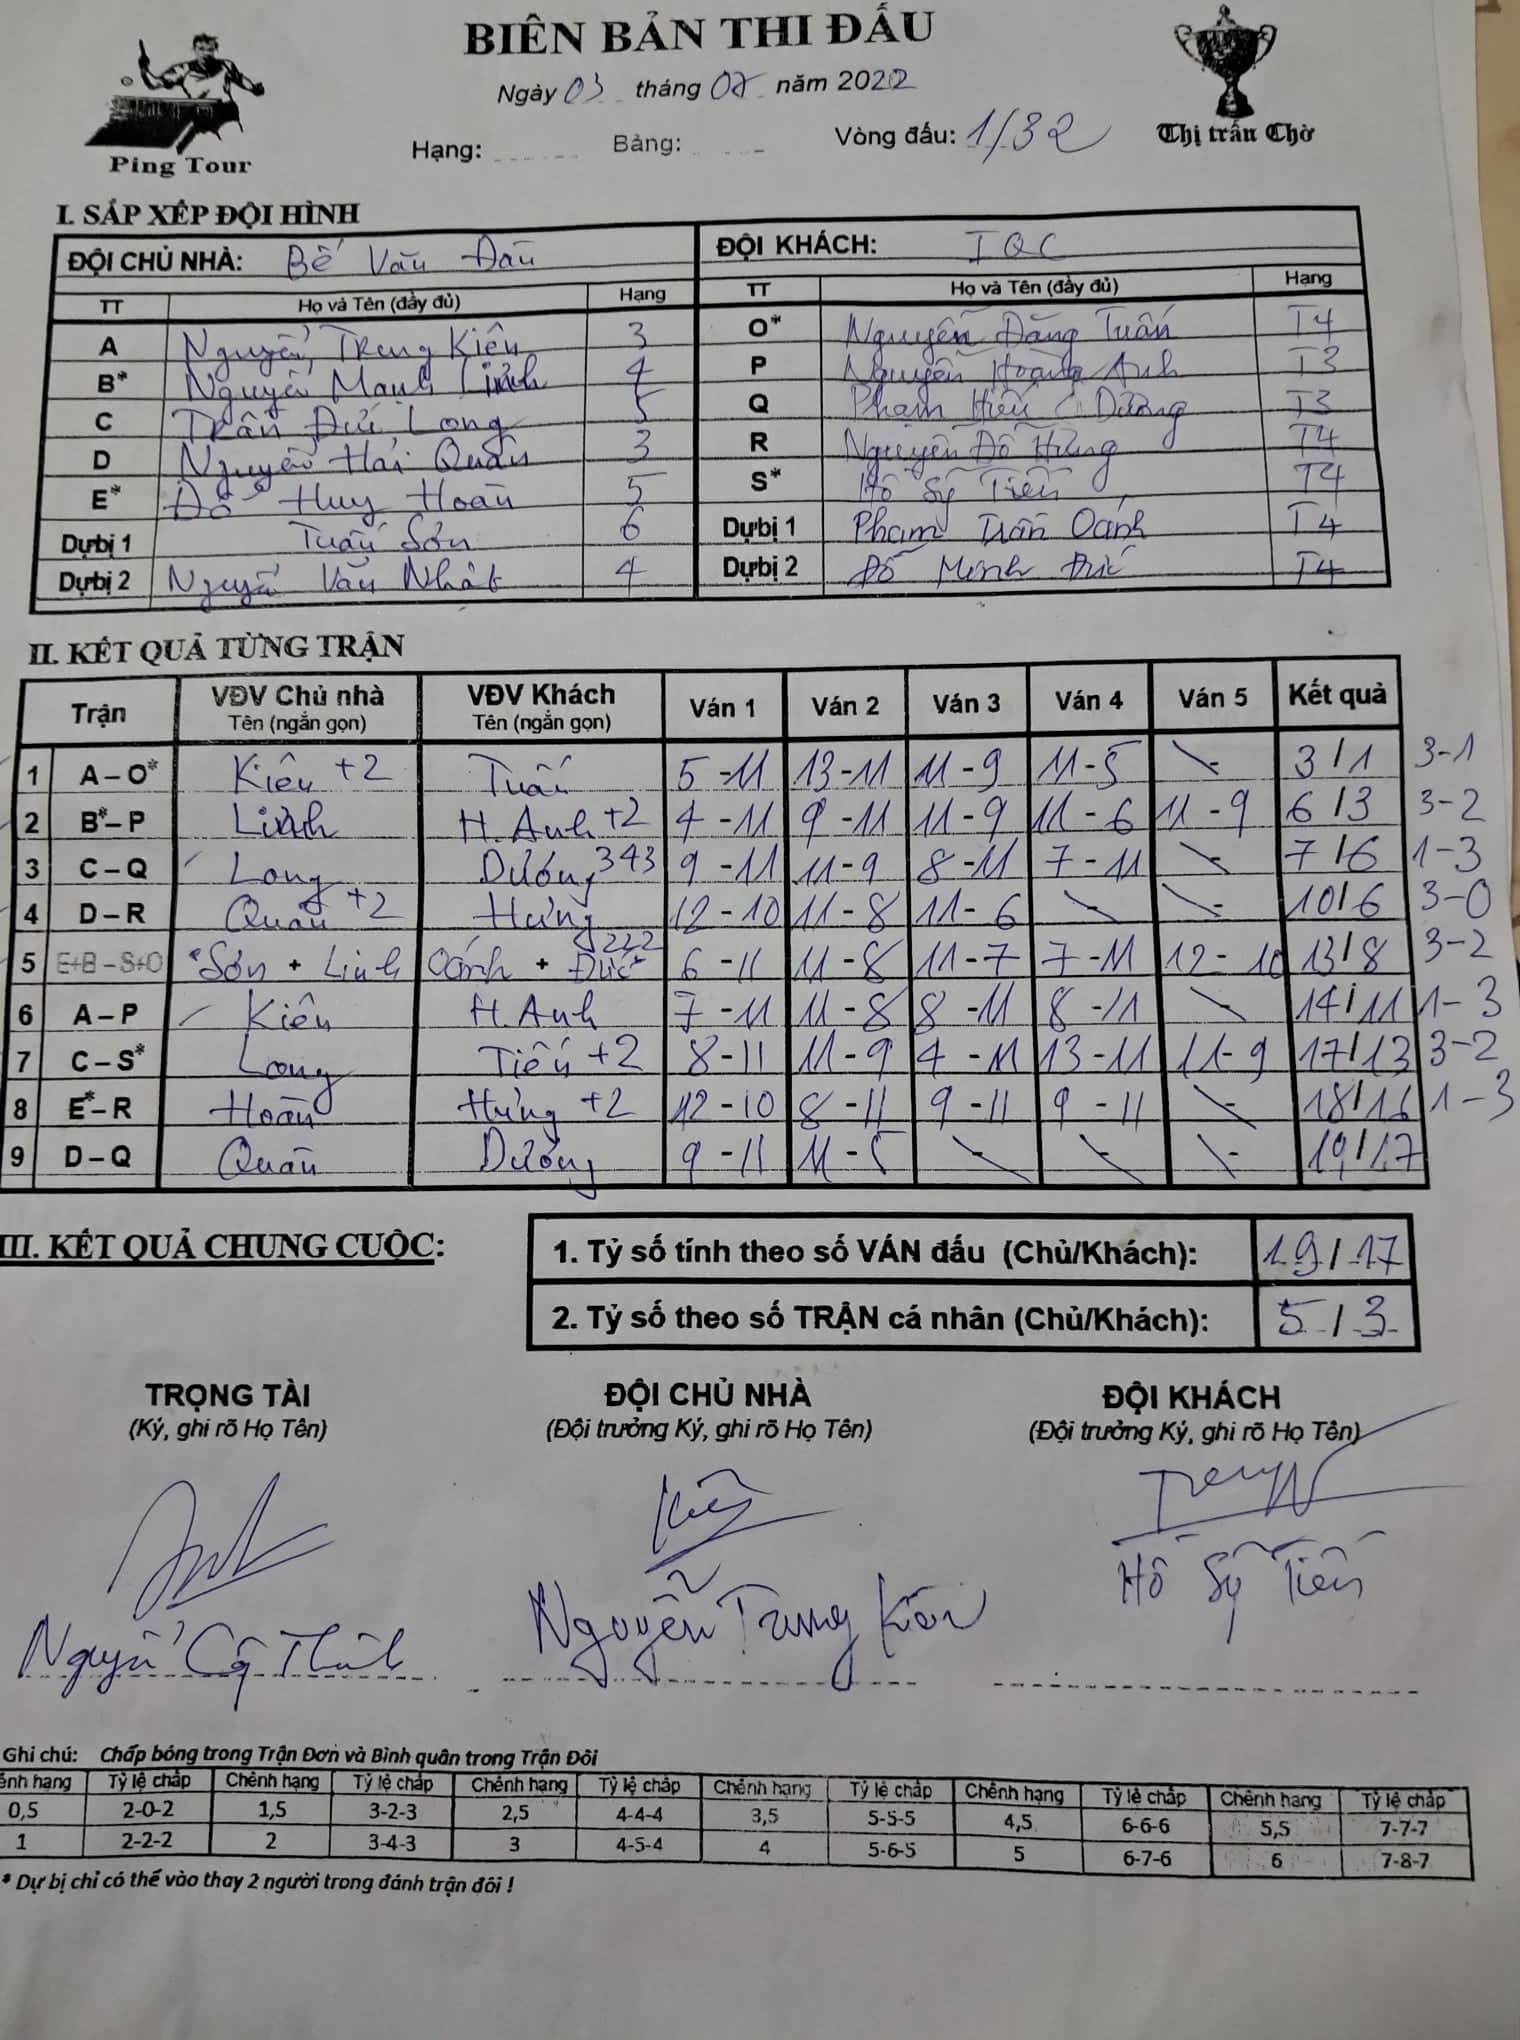 BIÊN BẢN THI ĐẤU
Ngày 03 tháng 07 năm 2022
Hạng: Bảng: Vòng đấu: 1/32
Ping Tour
Thị trấn Chờ
I. SẮP XẾP ĐỘI HÌNH
ĐỘI CHỦ NHÀ: Bế Văn Đàn ĐỘI KHÁCH: IQC
TT Họ và Tên (đầy đủ) Hạng TT Họ và Tên (đầy đủ) Hạng
A Nguyễn Trung Kiên 3 O* Nguyễn Đăng Tuấn T4
B* Nguyễn Mạnh Linh 4 P Nguyễn Hoàng Anh T3
C Trần Đức Long 5 Q Phạm Hiếu Dương T3
D Nguyễn Hải Quân 3 R Nguyễn Đỗ Hưng T4
E* Đỗ Huy Hoàn 5 S* Hồ Sỹ Tiến T4
Dự bị 1 Tuấn Sơn 6 Dự bị 1 Phạm Trần Oánh T4
Dự bị 2 Nguyễn Văn Nhật 4 Dự bị 2 Đỗ Minh Đức T4
II. KẾT QUẢ TỪNG TRẬN
Trận VĐV Chủ nhà Tên (ngắn gọn) VĐV Khách Tên (ngắn gọn) Ván 1 Ván 2 Ván 3 Ván 4 Ván 5 Kết quả
1 A – O* Kiên +2 Tuấn 5 - 11 13 - 11 11 - 9 11 - 5 - 3 / 1 3-1
2 B* – P Linh H. Anh +2 4 - 11 9 - 11 11 - 9 11 - 6 11 - 9 6 / 3 3-2
3 C – Q Long Dương 343 9 - 11 11 - 9 8 - 11 7 - 11 - 7 / 6 1-3
4 D – R Quân +2 Hưng 12 - 10 11 - 8 11 - 6 - - 10 / 6 3-0
5 E+B – S+O *Sơn + Linh Oánh + Đức* 222 6 - 11 11 - 8 11 - 7 7 - 11 12 - 10 13 / 8 3-2
6 A – P Kiên H. Anh 7 - 11 11 - 8 8 - 11 8 - 11 - 14 / 11 1-3
7 C – S* Long Tiến +2 8 - 11 11 - 9 4 - 11 13 - 11 11 - 9 17 / 13 3-2
8 E* – R Hoàn Hưng +2 12 - 10 8 - 11 9 - 11 9 - 11 - 18 / 16 1-3
9 D – Q Quân Dương 9 - 11 11 - 5 - - - 19 / 17
III. KẾT QUẢ CHUNG CUỘC:
1. Tỷ số tính theo số VÁN đấu (Chủ/Khách): 19 / 17
2. Tỷ số theo số TRẬN cá nhân (Chủ/Khách): 5 / 3
TRỌNG TÀI ĐỘI CHỦ NHÀ ĐỘI KHÁCH
(Ký, ghi rõ Họ Tên) (Đội trưởng Ký, ghi rõ Họ Tên) (Đội trưởng Ký, ghi rõ Họ Tên)
Nguyễn Nguyễn Trung Kiên Hồ Sỹ Tiến
Ghi chú: Chấp bóng trong Trận Đơn và Bình quân trong Trận Đôi
ênh hạng Tỷ lệ chấp Chênh hạng Tỷ lệ chấp Chênh hạng Tỷ lệ chấp Chênh hạng Tỷ lệ chấp Chênh hạng Tỷ lệ chấp Chênh hạng Tỷ lệ chấp
0,5 2-0-2 1,5 3-2-3 2,5 4-4-4 3,5 5-5-5 4,5 6-6-6 5,5 7-7-7
1 2-2-2 2 3-4-3 3 4-5-4 4 5-6-5 5 6-7-6 6 7-8-7
* Dự bị chỉ có thể vào thay 2 người trong đánh trận đôi !